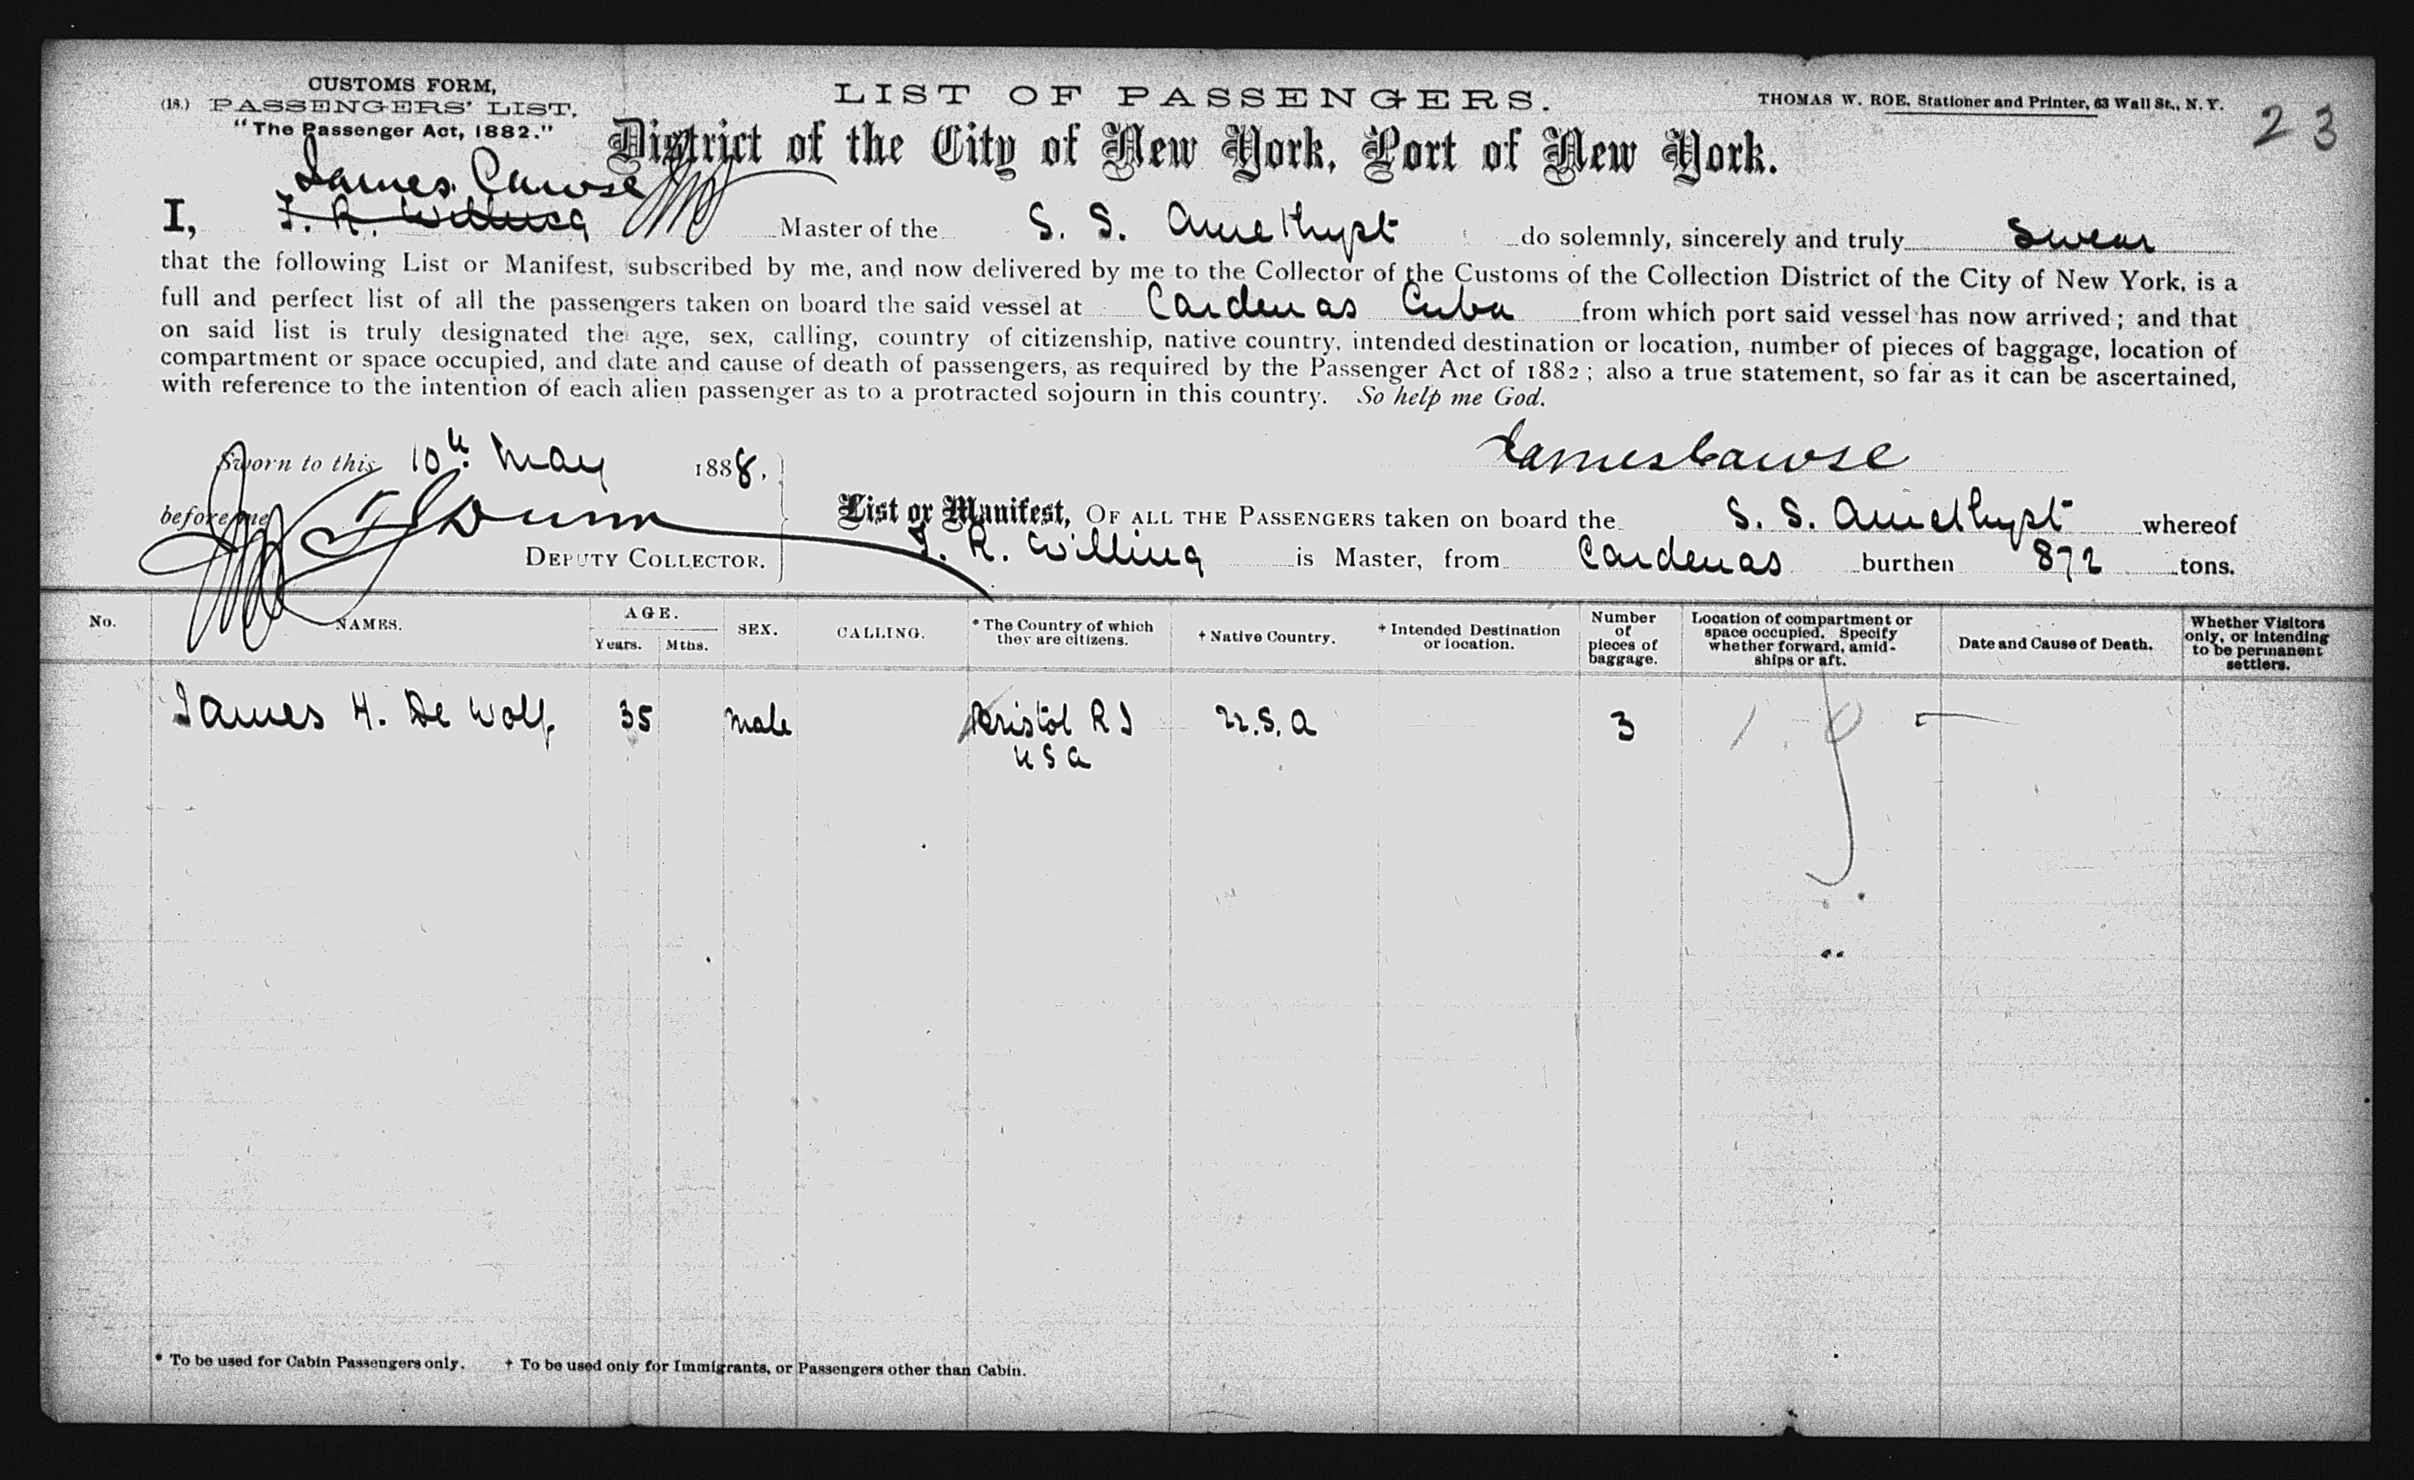 CUSTOMS FORM,
(18.) PASSENGERS' LIST,
"The Passenger Act, 1882."
LIST OF PASSENGERS.
THOMAS W. ROE, Stationer and Printer, 63 Wall St., N. Y.
23
District of the City of New York, Port of New York.
James Cawse
I, T. R. Willing Master of the S. S. Amethyst do solemnly, sincerely and truly swear
that the following List or Manifest, subscribed by me, and now delivered by me to the Collector of the Customs of the Collection District of the City of New York, is a
full and perfect list of all the passengers taken on board the said vessel at Cardenas Cuba from which port said vessel has now arrived; and that
on said list is truly designated the age, sex, calling, country of citizenship, native country, intended destination or location, number of pieces of baggage, location of
compartment or space occupied, and date and cause of death of passengers, as required by the Passenger Act of 1882; also a true statement, so far as it can be ascertained,
with reference to the intention of each alien passenger as to a protracted sojourn in this country. So help me God.
Sworn to this 10th May 1888,
James Cawse
before me Dunn
DEPUTY COLLECTOR.
List or Manifest, OF ALL THE PASSENGERS taken on board the S. S. Amethyst whereof
T. R. Willing is Master, from Cardenas burthen 872 tons.
No. NAMES. AGE. Years. Mths. SEX. CALLING. * The Country of which they are citizens. † Native Country. † Intended Destination or location. Number of pieces of baggage. Location of compartment or space occupied. Specify whether forward, amidships or aft. Date and Cause of Death. Whether Visitors only, or intending to be permanent settlers.
James H. De Wolf 35 male Bristol R I U.S.A 3
U S A
* To be used for Cabin Passengers only. † To be used only for Immigrants, or Passengers other than Cabin.